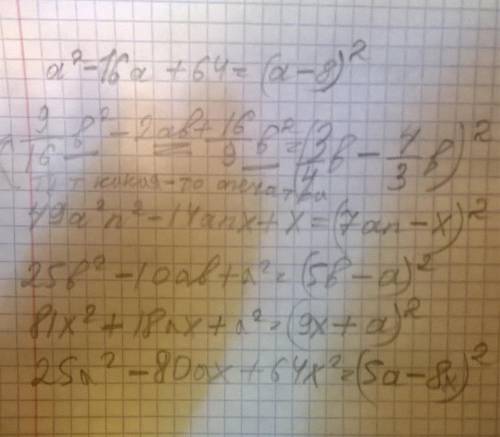 a² - 16a + 64 = (a - 8)²
9/16 b² - 2ab + 16/9 b² = (3/4 b - 4/3 b)²
тут какая-то опечатка
49a²n² - 14anx + x = (7an - x)²
25b² - 10ab + a² = (5b - a)²
81x² + 18ax + a² = (9x + a)²
25a² - 80ax + 64x² = (5a - 8x)²